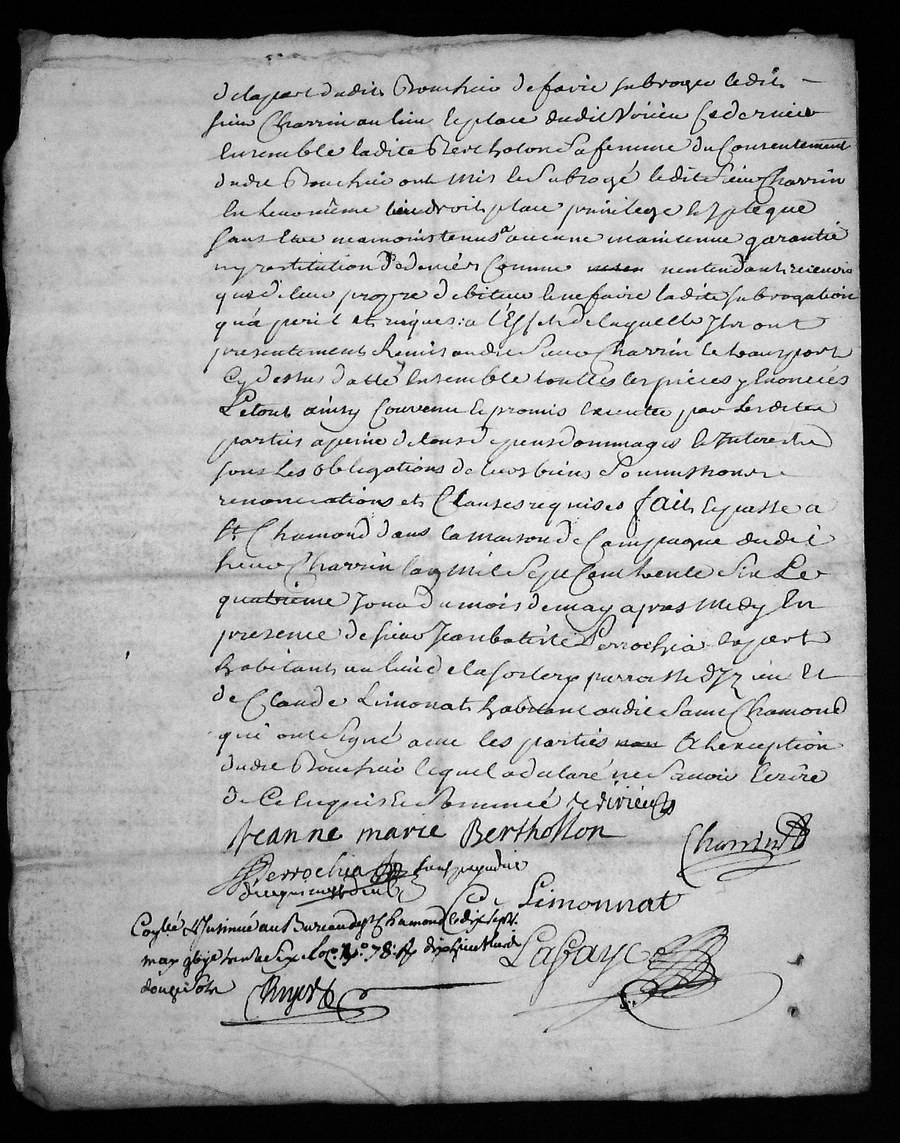 delapart dudit Bouchié de faire subroger ledit
sieur Charrin au lieu et place dudit Virieu ce dernier
Ensemble ladite Bertholon sa femme du Consentement
dudit Bouchié ont mis et subrogé ledit sieur Charrin
En leur même lieu droit place privilege et ypteque
sans Etre neamoins tenus a aucune maintenue garantie
ny restitution de deniers Comme nentendant recevoir
que de leur propre debiteur et ne faire ladite subrogation
qua peril et risques: a l'Effet de laquelle Ils ont
presentement Remis audit sieur Charrin le transport
Cy dessus datté Ensemble touttes les pièces y Enoncées
Le tout ainsy Convenu et promis executer par lesdites
parties a peine de tous depens dommages et Interests
sous Les obligations de leurs biens soumissions
renonciations et Clauses requises fait et passé a
st Chamond dans la maison de Campagne dudit
sieur Charrin lan Mil sept Cent trente six Le
quatrieme Jour du mois de may apres Midy En
presence de sieur Jean batiste Perrochia expert
habitant au lieu de la parroisse d'Izieu Et
de Claude Limonat habitant audit Saint Chamond
qui ont signé avec les parties a lexception
dudit Bouchié lequel a declaré ne savoir Ecrire
de Ce Enquis et sommé de virieu
Jeanne marie Berthollon
Charrin
Perrochia sans prejudice
C. Limonnat
Collé & Insinué au Bureau de st Chamond le dix sept
may 1736 trente six fo. No. 78. R dix huit livres
douze sols
Lafaye